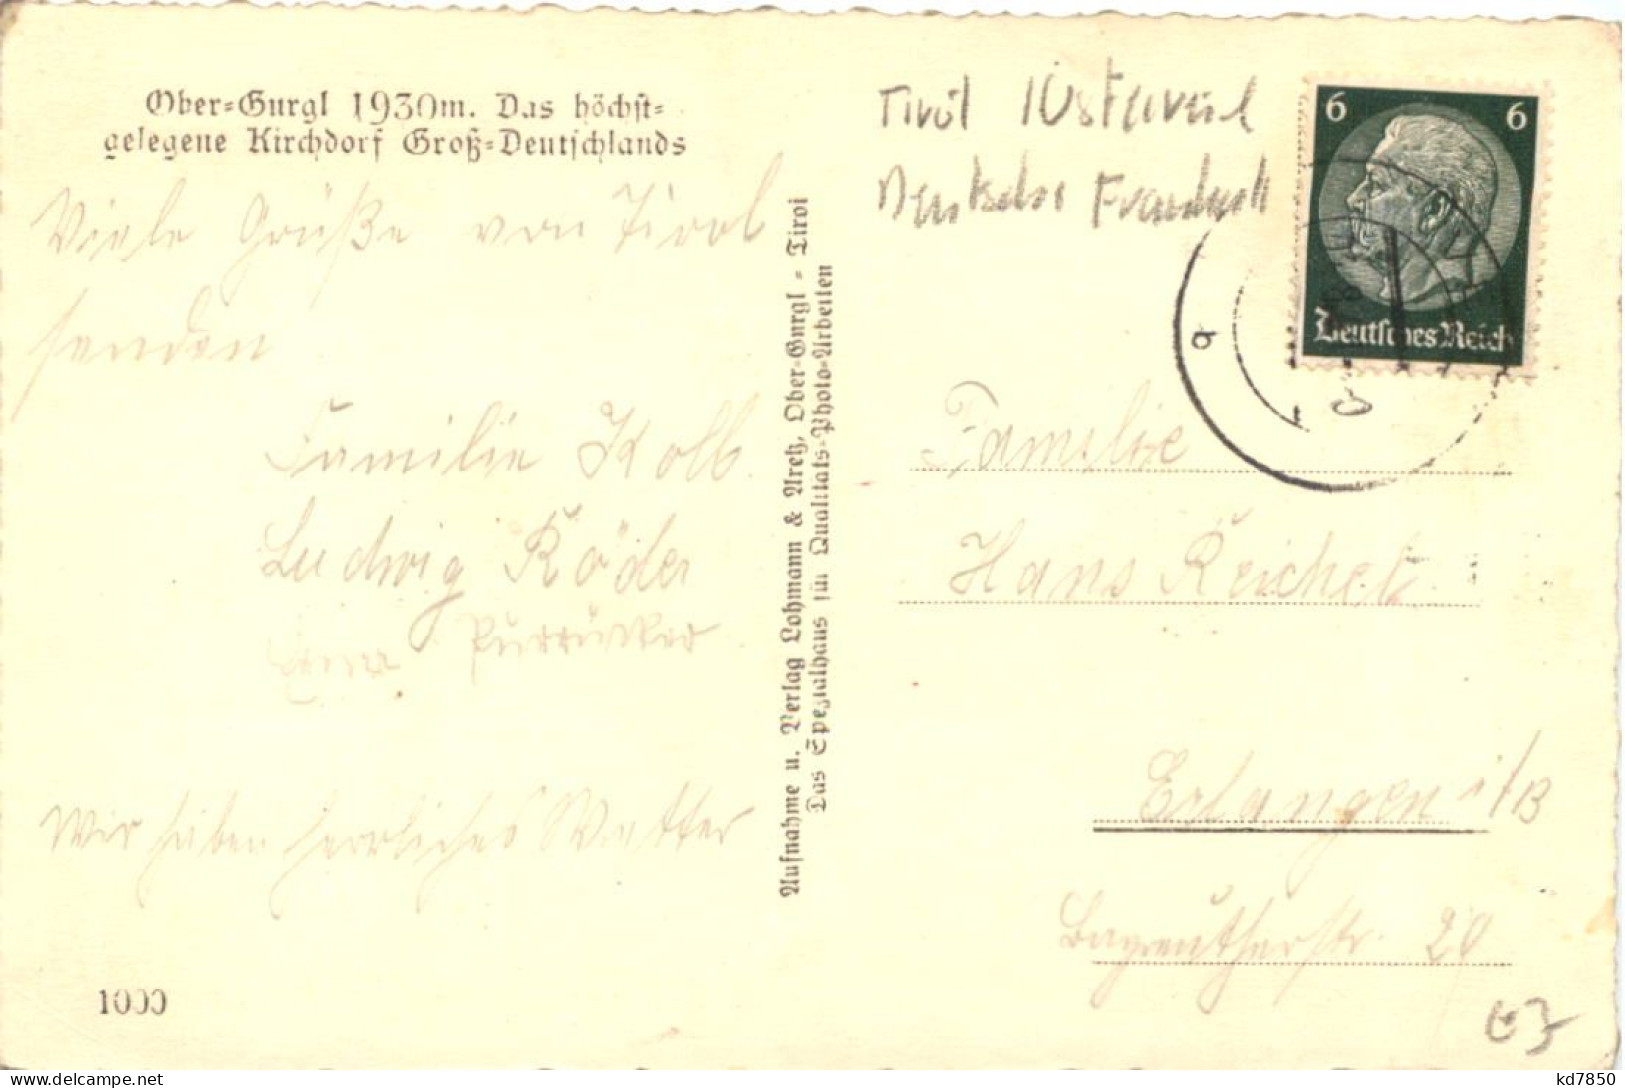 Ober-Gurgl 1930m. Das höchst-
gelegene Kirchdorf Groß-Deutschlands
Viele Grüße von Tirol
senden
Familie Kolb
Ludwig Röder
Wir haben herrliches Wetter
1000
Aufnahme u. Verlag Lohmann & Arch, Ober-Gurgl - Tirol
Das Spezialhaus für Qualitäts-Photo-Arbeiten
Tirol
6 6
Deutsches Reich
Familie
Hans Reichel
Erlangen i/B
Bayreutherstr. 20
kd7850